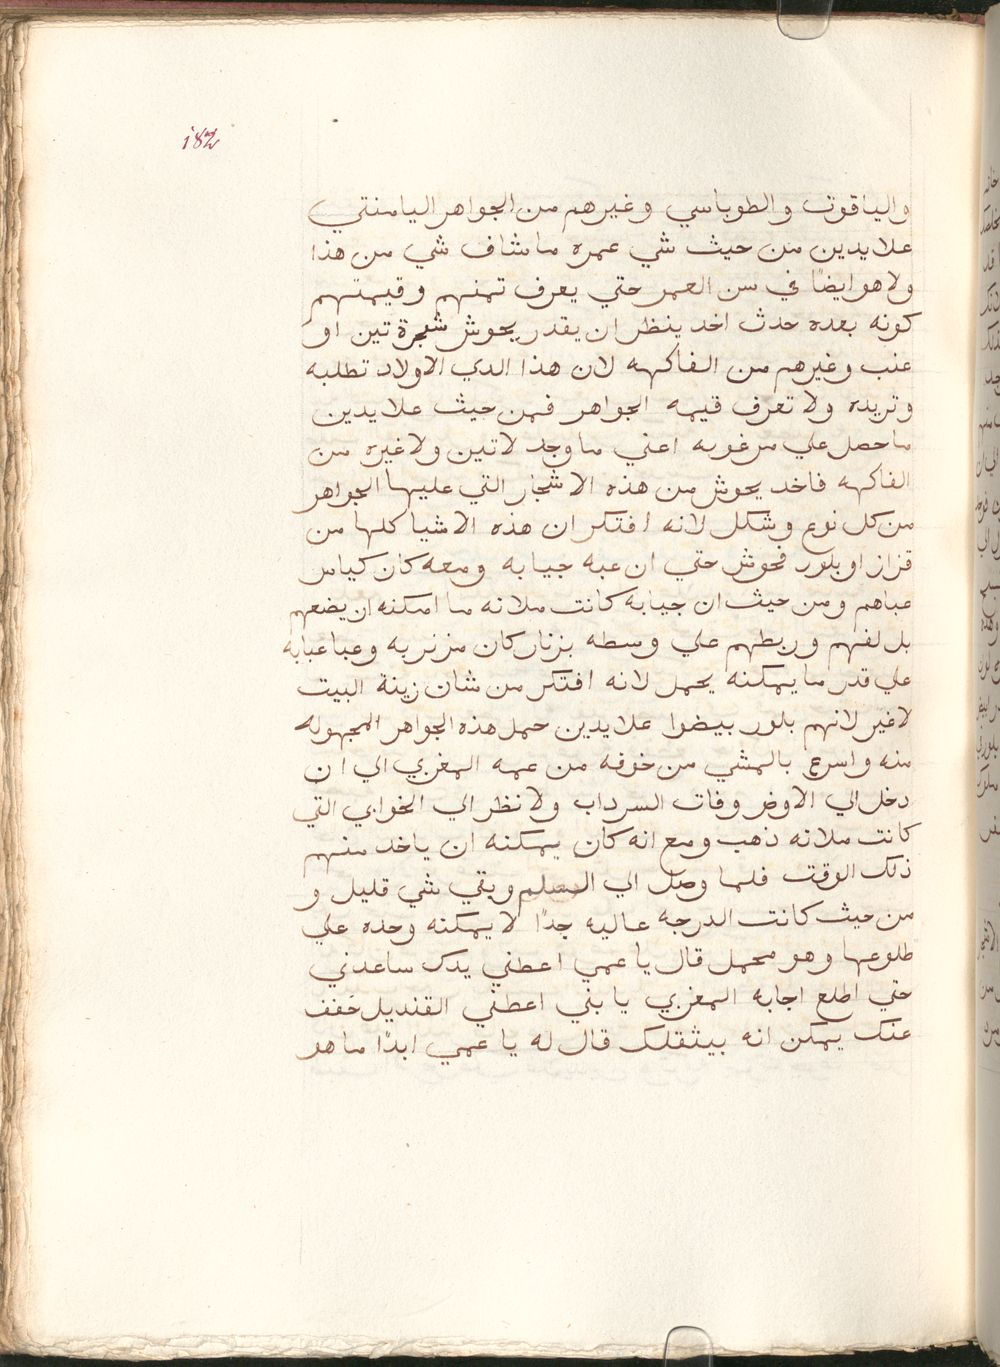 182
والياقوت والطوباسي وغيرهم من الجواهر اليامنتي
علايدين من حيث شي عمره ماشاف شي من هذا
ولا هو ايضًا في سن العمر حتي يعرف تمنهم وقيمتهم
كونه بعده حدث اخد ينظر ان يقدر يحوش شجرة تين او
عنب وغيرهم من الفاكهه لان هذا الدي الاولاد تطلبه
وتريده ولا تعرف قيمه الجواهر فمن حيث علايدين
ما حصل علي مرغوبه اعني ما وجد لا تين ولا غيره من
الفاكهه فاخد يحوش من هذه الاشجار التي عليها الجواهر
من كل نوع وشكل لانه افتكر ان هذه الاشيا كلها من
قزاز او بلور فحوش حتي ان عبه جيابه ومعه كان كياس
عباهم ومن حيث ان جيابه كانت ملانه ما امكنه ان يضعهم
بل لفهم وربطهم علي وسطه بزنار كان مزنر به وعبا عبابه
علي قدر ما يمكنه يحمل لانه افتكر من شان زينة البيت
لا غير لانهم بلور بيضوا علايدين حمل هذه الجواهر المجهوله
منه واسرع بالمشي من خوفه من عمه المغربي الي ان
دخل الي الاوض وفات السرداب ولا نظر الي الخوابي التي
كانت ملانه ذهب ومع انه كان يمكنه ان ياخد منهم
ذلك الوقت فلما وصل الي السلم وبقي شي قليل و
من حيث كانت الدرجه عاليه جدًا لا يمكنه وحده علي
طلوعها وهو محمل قال يا عمي اعطني يدك ساعدني
حتي اطلع اجابه المغربي يا بني اعطني القنديل خفف
عنك يمكن انه بيثقلك قال له يا عمي ابدًا ما هو